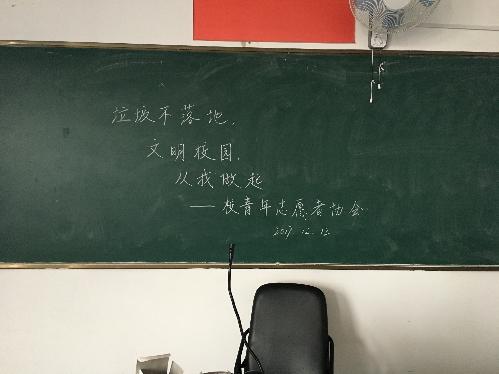 垃圾不落地,
文明校园,
从我做起
——校青年志愿者协会
2017.12.12